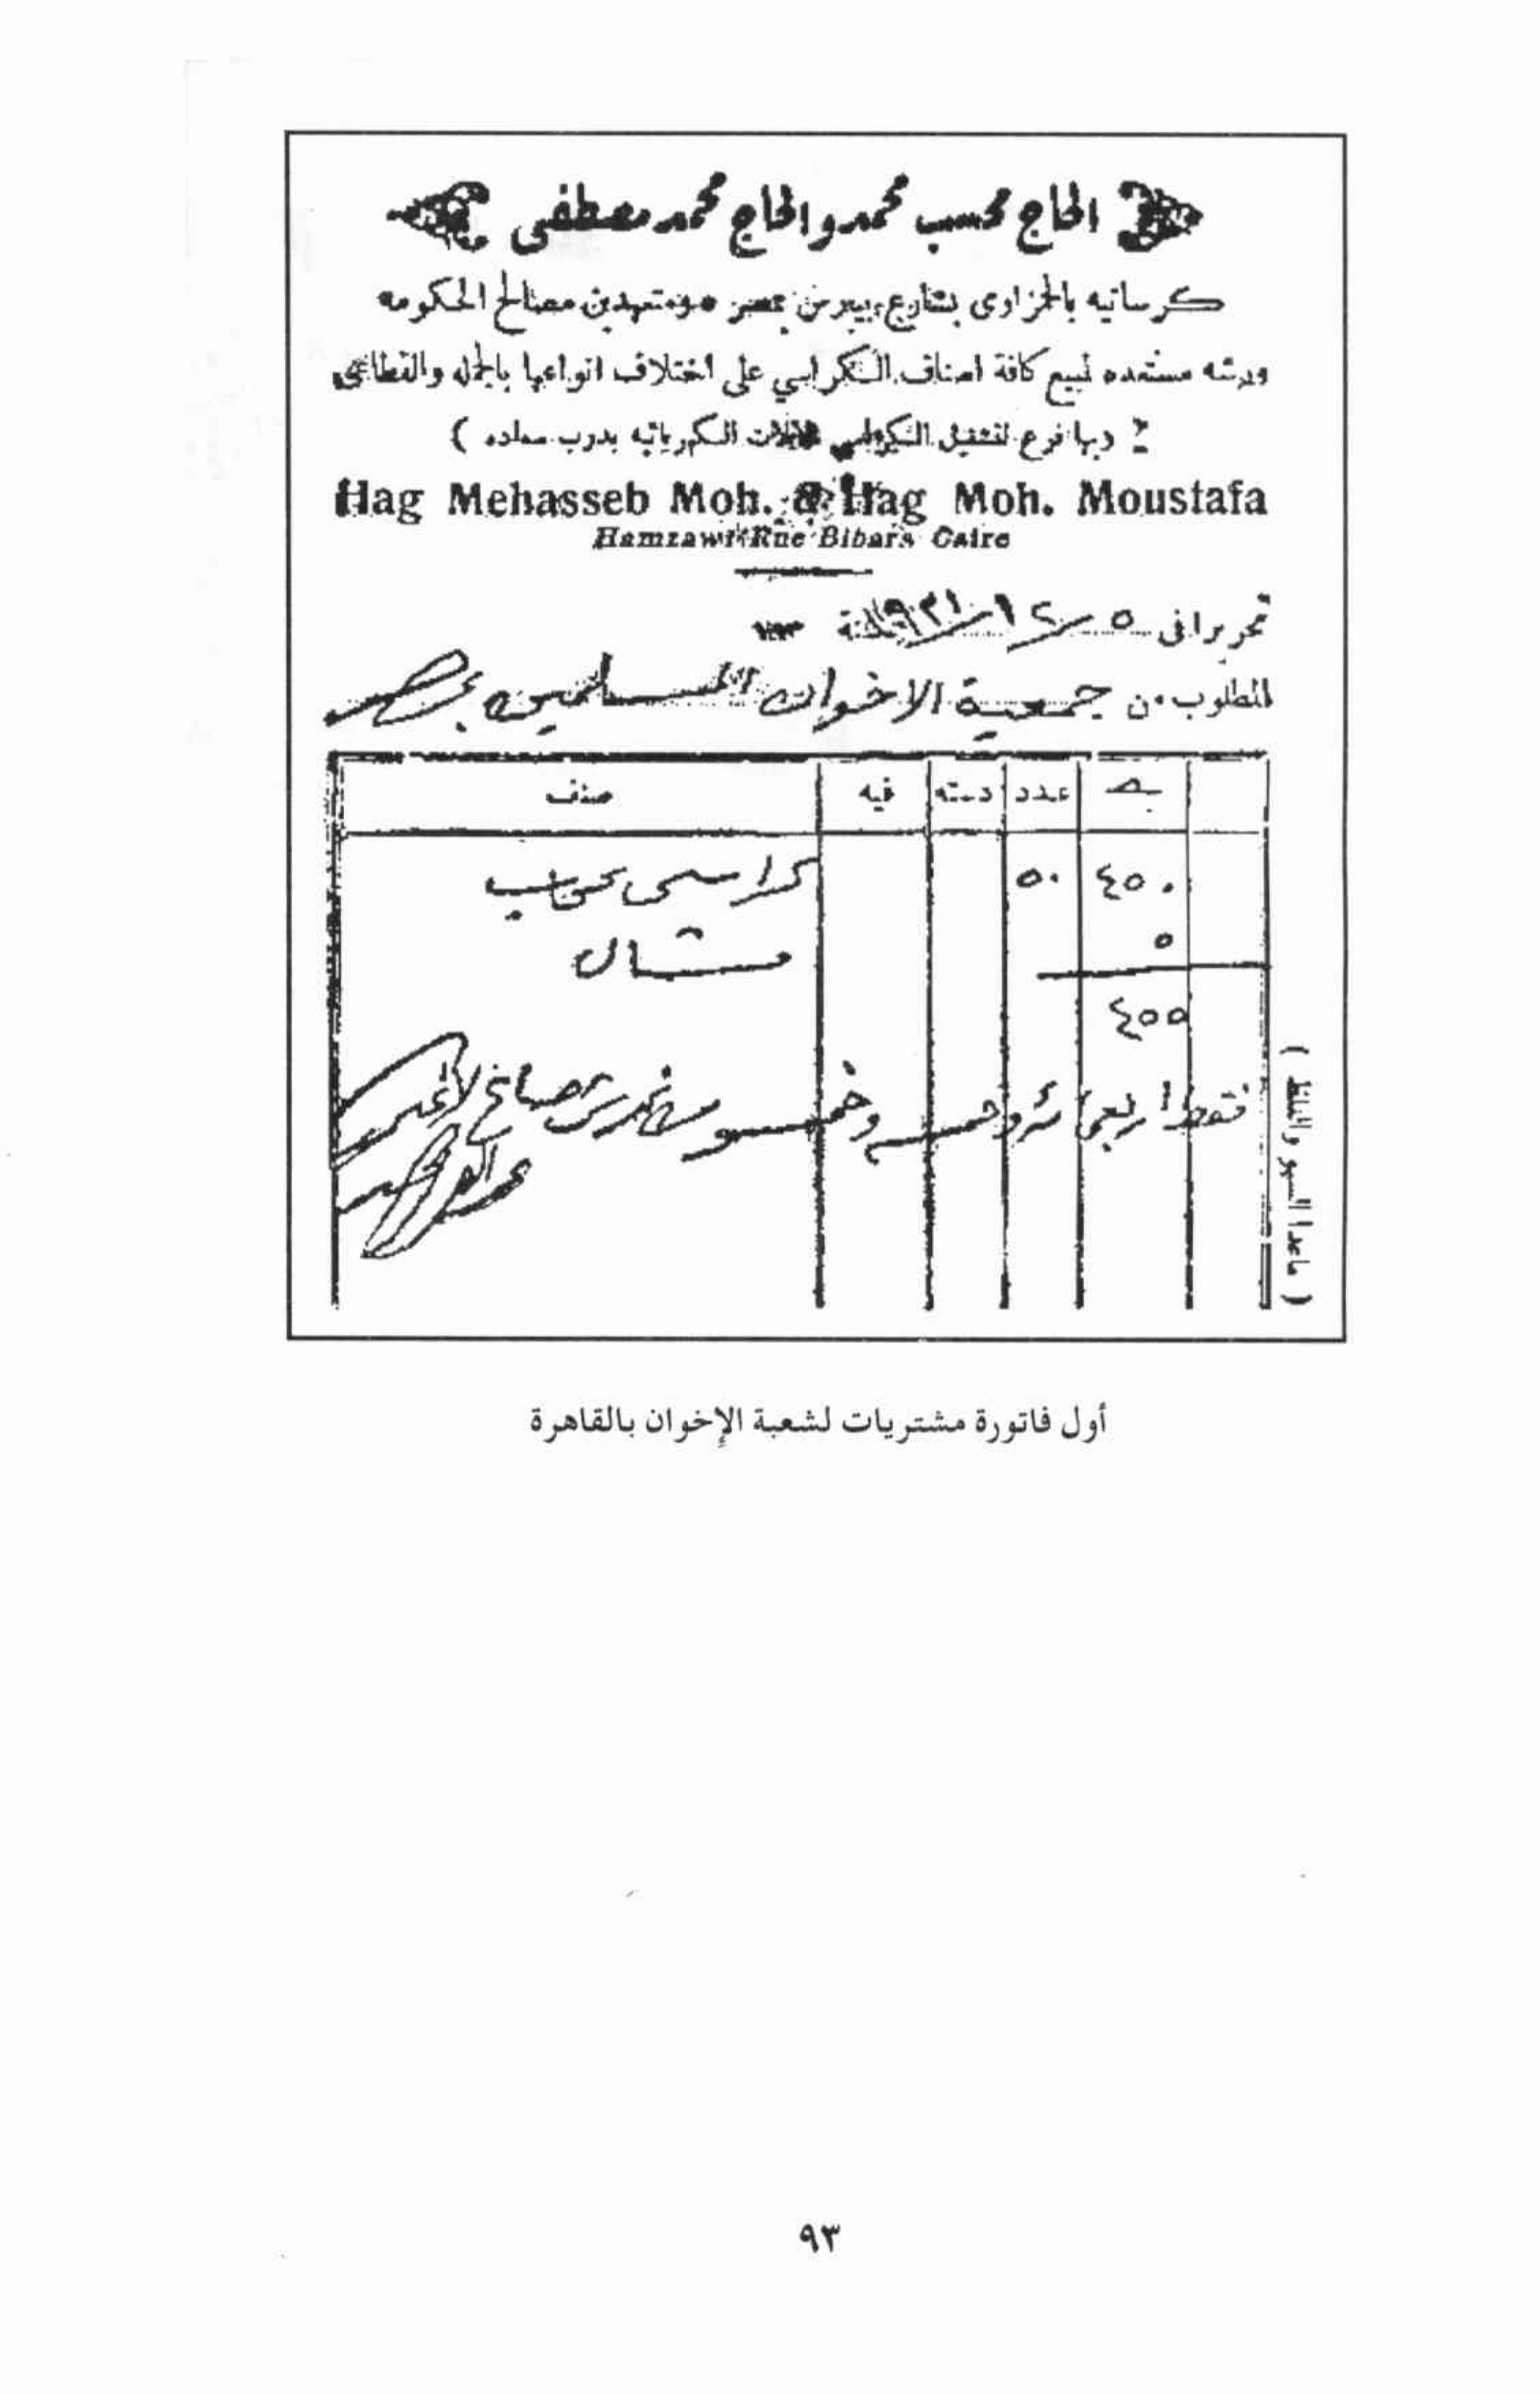 الحاج محسب محمد والحاج محمد مصطفى
كرساتيه بالحمزاوى بشارع بيبرس بمصر ومتعهدين مصالح الحكومه
ورشه مستعده لبيع كافة اصناف الكراسي على اختلاف انواعها بالجمله والقطاعى
( وبها فرع لتشغيل الكراسي بدرب سعاده )
Hag Mehasseb Moh. & Hag Moh. Moustafa
Hamzawi Rue Bibars Caire
تحريرا فى ٥/١٢/١٩٣١ سنة ١٩٣
المطلوب من جمعية الاخوان المسلمين بمصر
عدد دسته فيه صنف
٤٥٠ ٥٠ كراسى
٥ مشال
٤٥٥
فقط اربعمائة وخمسه وخمسون قرش صاغ لا غير
( ماعدا السهو والغلط )
أول فاتورة مشتريات لشعبة الإخوان بالقاهرة
٩٣